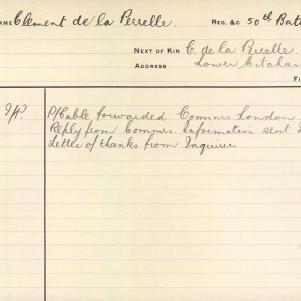 NAME Clement de la Perrelle. REG. &C 50th Batt
NEXT OF KIN C. de la Perelle.
ADDRESS Lower Mitcham
P/Cable forwarded Commrs London
Reply from Commrs. Information sent
Letter of thanks from Inquirer